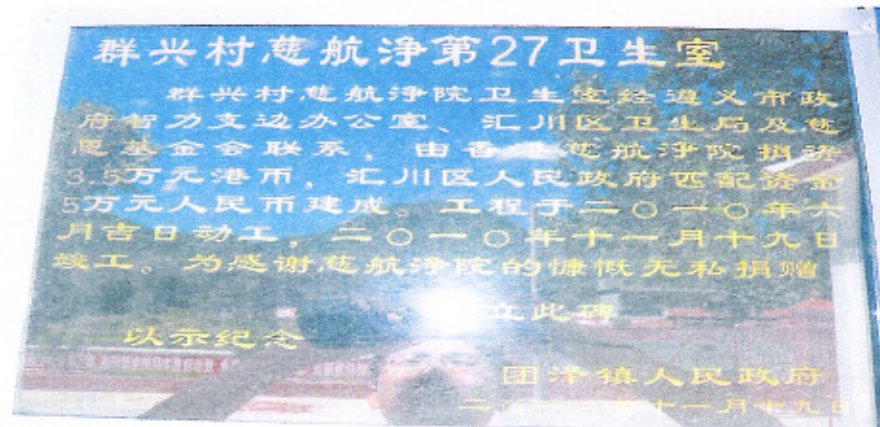 群兴村慈航净第27卫生室
群兴村慈航净院卫生室经遵义市政
府智力支边办公室、汇川区卫生局及慈
恩基金会联系，由香港慈航净院捐资
3.5万元港币，汇川区人民政府匹配资金
5万元人民币建成。工程于二〇一〇年六
月吉日动工，二〇一〇年十一月十九日
竣工。为感谢慈航净院的慷慨无私捐赠
立此碑
以示纪念
团泽镇人民政府
十一月十九日